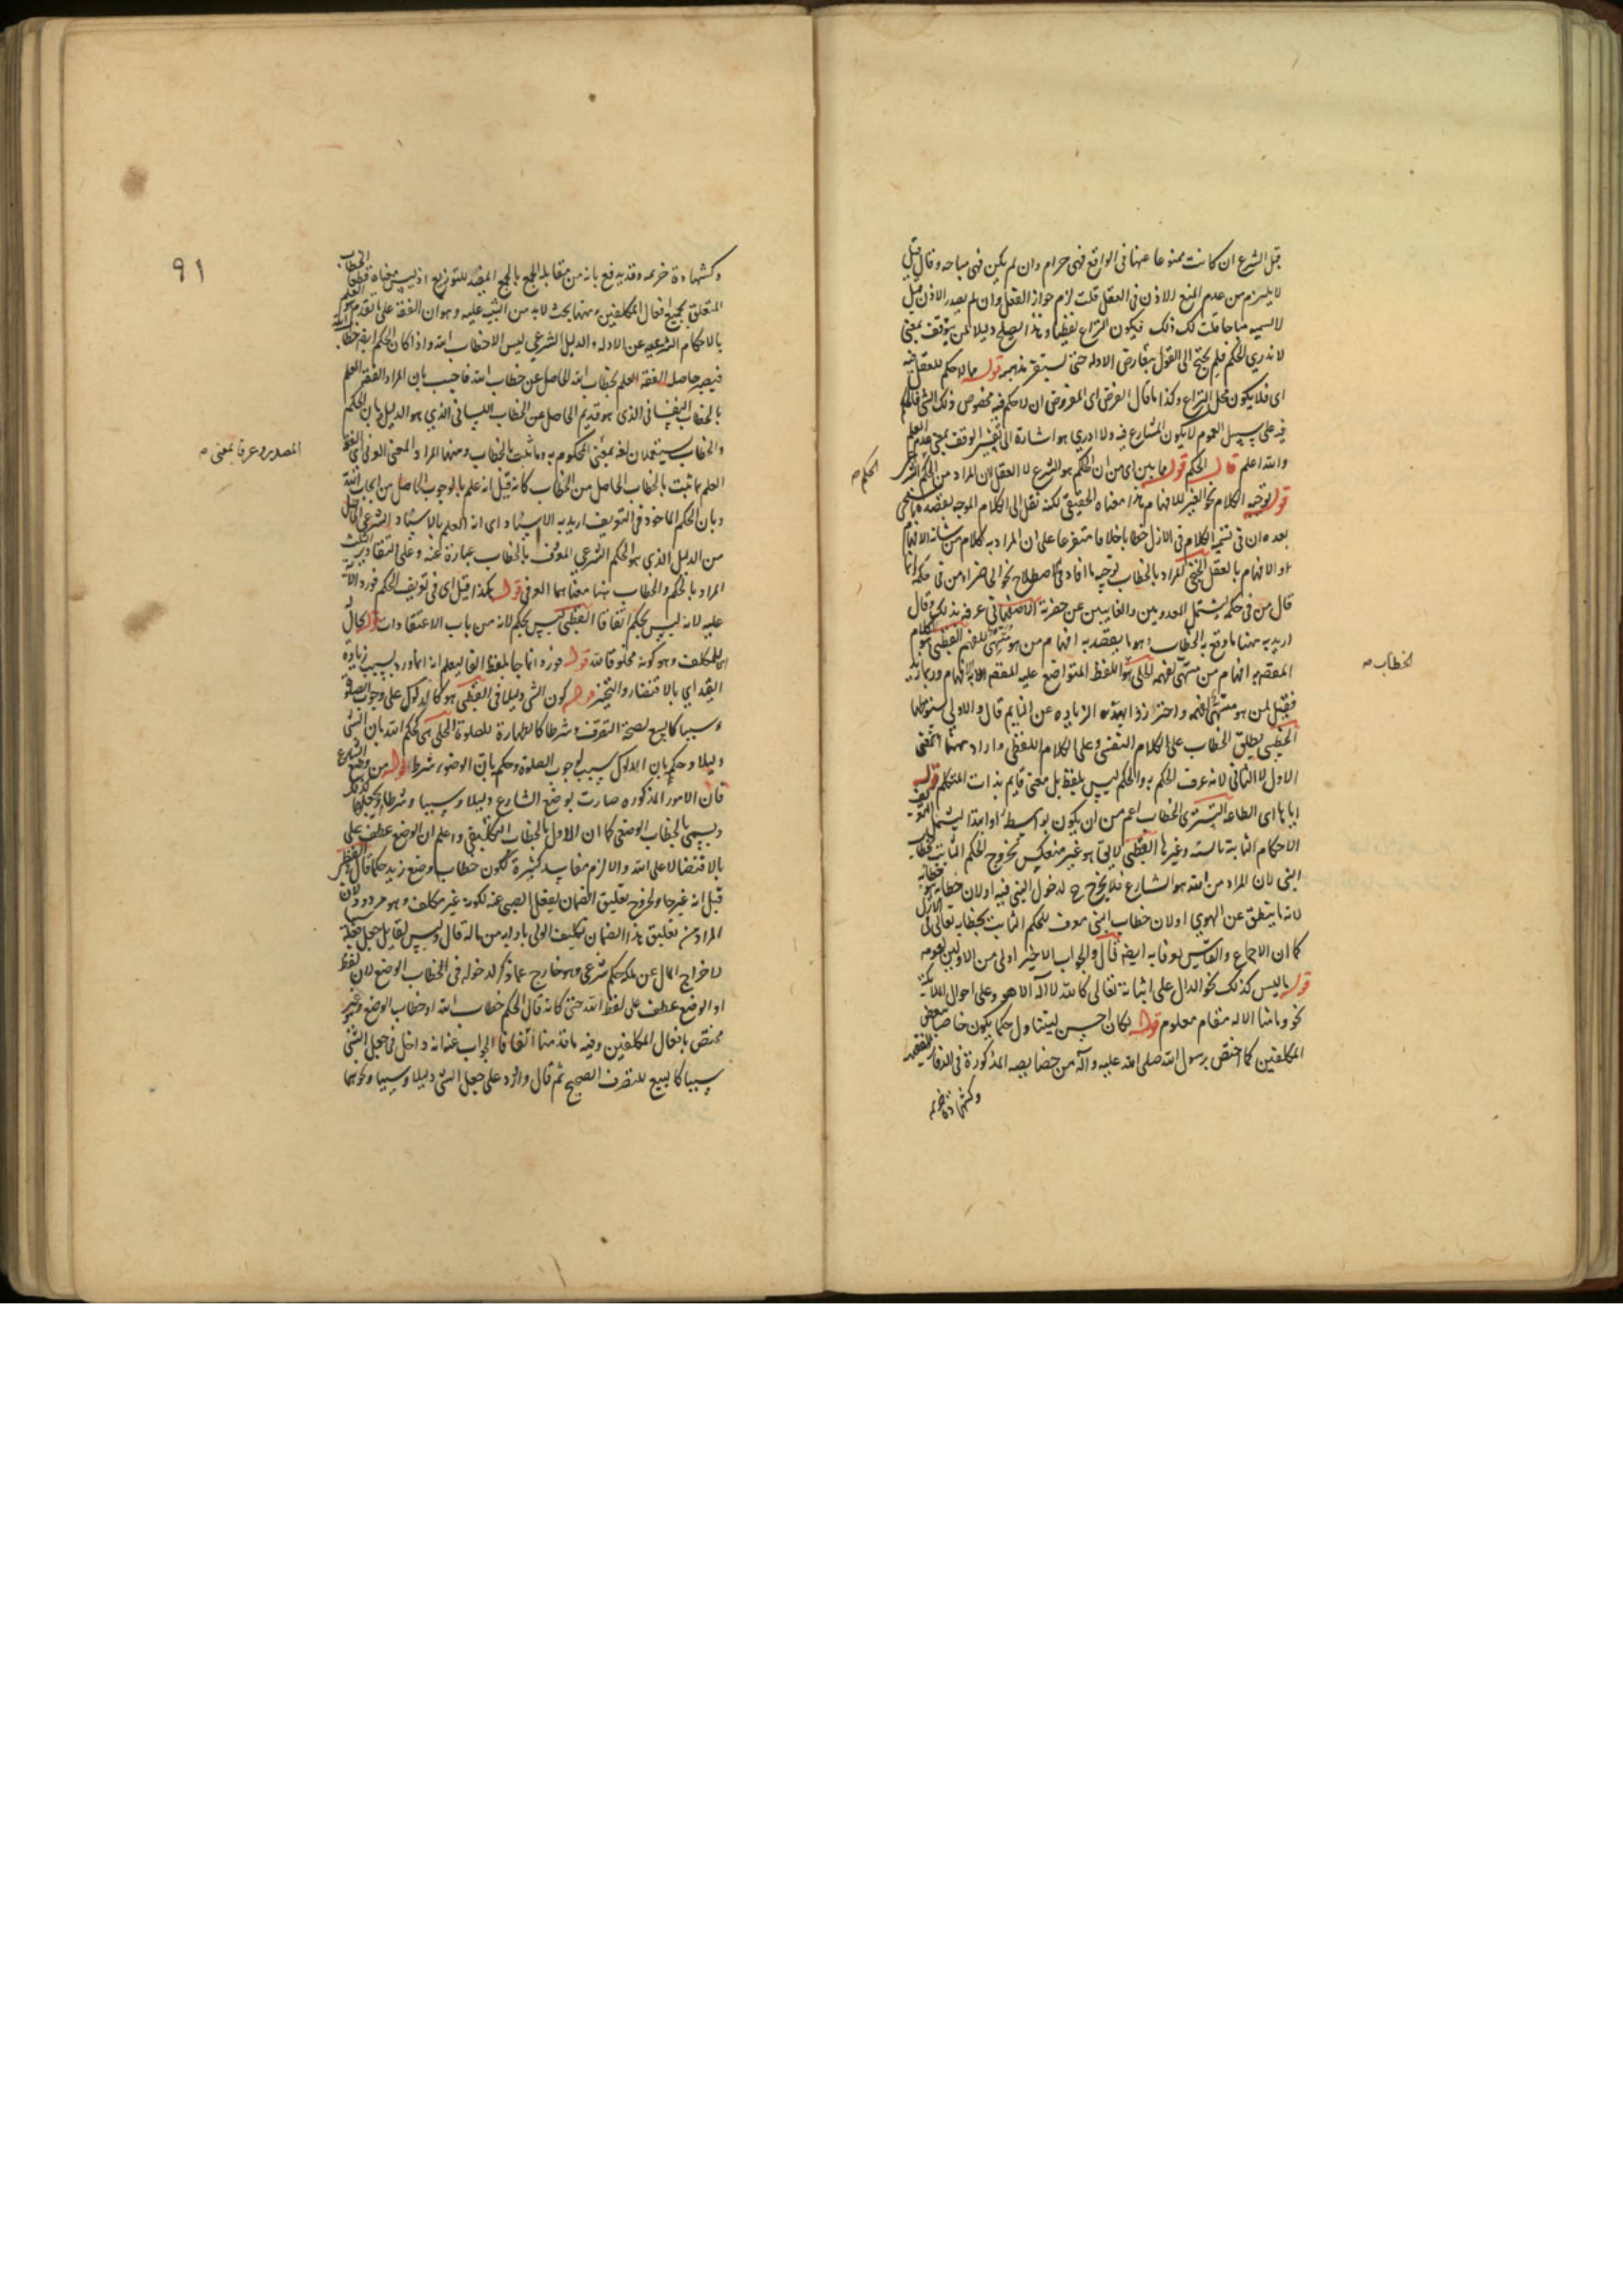 قبل الشرع ان كانت ممنوعا عنها فى الواقع فهى حرام وان لم يكن فهى مباحه وقال قيل
لا يلزم من عدم المنع الاذن فى العقل قلت لزم جواز الفعل وان لم يصدر الاذن قيل
لا نسميه مباحا قلت لك ذلك فيكون النزاع لفظيا وهذا يصلح دليلا لمن يتوقف بمعنى
لا ندرى الحكم فلم يحتج الى القول بتعارض الادله حتى يستقر مذهبه قوله مما لا حكم للعقل فيه
اى فلا يكون محل النزاع وكذا ما قال الفرض اى المفروض ان لا حكم فيه بخصوص ذلك الشئ
فيه على سبيل العموم لا يكون الشارع فيه ولا ادرى هو اشارة الى تفسير الوقف بمعنى عدم العلم
والله اعلم قال الحكم قوله ما بين اى من ان الحكم هو الشرع لا العقل لان المراد من الحكم الشر
الحكم صح
قوله توجيه الكلام نحو الغير للافهام هذا معناه الحقيقى لكنه نقل الى الكلام الموجه بقصده
بعده ان فى تسمية الكلام فى الازل خطابا خلافا متفرعا على ان المراد به كلام من شانه الافهام
او الافهام بالفعل الخنجى المراد بالخطاب توجيه ما افاد فى الاصطلاح نحو الحاضر او من فى حكمه وانما
قال من فى حكمه ليشتمل المعدومين والغائبين عن حضرته الاصفهانى عرفه بذلك وقال
اريد به ههنا ما وقع به الخطاب وهو ما يقصد به افهام من هو متهيئ للفهم القطبى هو الكلام
الخطاب صح
المقصد به افهام من متهيئ لفهمه الحلى هو اللفظ المتواضع عليه المقصد به الافهام وربما زيد
فقيل لمن هو متهيئ لفهمه واحترزوا بهذه الزياده عن النايم قال والاولى سقوطها
القطبى يطلق الخطاب على الكلام النفسى وعلى الكلام اللفظى واراد ههنا المعنى
الاول لا الثانى لانه عرف الحكم به والحكم ليس بلفظ بل معنى قايم بذات المتكلم قوله
ايانا اى الطاعه التسترى الخطاب اعم من ان يكون بواسطه او ابتدا ليشمل
الاحكام الثابتة بالسنه وغيرها القطبى لا يقال هو غير منعكس لخروج الحكم الثابت بخطاب
النبى لان المراد من الله هو الشارع فلا يخرج ح لدخول النبى فيه او لان خطابه هو خطابه
لانه ما ينطق عن الهوى او لان خطاب النبى معرف للحكم الثابت بخطابه تعالى فى الازل
كما ان الاجماع والقياس معرفا به ايضا قال والجواب الاخير اولى من الاولين لعمومه
قوله ما ليس كذلك نحو الدال على اثباته تعالى كالله لا اله الا هو وعلى احوال الملايكة
نحو وما منا الا له مقام معلوم قوله لكان احسن ليتناول حكما يكون خاصا ببعض
المكلفين كما اختص برسول الله صلى الله عليه وآله من خصايصه المذكورة فى الدفاتر الفقهيه
وكشهادة خزيمه
٩١
وكشهادة خزيمه وقد يدفع بانه من مقابلة الجمع بالجمع المفيد للتوزيع اذ ليس معناه قطعا الخطاب
المتعلق بجميع افعال المكلفين وههنا بحث لابد من التنبيه عليه وهو ان الفقه على ما تقدم هو العلم
بالاحكام الشرعيه عن الادله والدليل الشرعى ليس الا خطاب الله واذا كان الحكم ايضا خطاب الله
فيصير حاصله الفقه العلم بخطاب الله الحاصل عن خطاب الله فاجيب بان المراد الفقه العلم
بالخطاب النفسانى الذى هو قديم الحاصل عن الخطاب اللسانى الذى هو الدليل وبان الحكم
والخطاب يستعملان لغة بمعنى المحكوم به وما ثبت بالخطاب وههنا المراد المعنى العرفى اى الفقه
المصدر وعرفا بمعنى صح
العلم بما ثبت بالخطاب الحاصل من الخطاب كانه قيل انه علم بالوجوب الحاصل من ايجاب الله
وبان الحكم الماخوذ فى التعريف اريد به الاسناد اى انه العلم بالاسناد الشرعى الحاصل
من الدليل الذى هو الحكم الشرعى المعرف بالخطاب عبارة عنه وعلى التقادير الثلث
المراد بالحكم والخطاب ههنا معناهما العرفى قوله هكذا قيل اى فى تعريف الحكم فورد
عليه لانه ليس بحكم اتفاقا القطبى ليس بحكم لانه من باب الاعتقادات قوله لحال
اى للمكلف وهو كونه مخلوقا لله قوله فزد وانما جا بلفظ الفا ليعلم انه انما ورد بسبب زيادة
القيد اى بالاقتضاء والتخيير قوله كون الشئ دليلا فى القطبى هو كالدلوك على وجوب الصلوة
وسببا كالبيع لصحة التصرف وشرطا كالطهارة للصلوة الحلى هى كحكم الله بان الشئ
دليلا وحكم بان الدلوك سبب لوجوب الصلوة وحكم بان الوضوء شرط قوله من وضع الشارع
فان الامور المذكوره صارت بوضع الشارع دليلا وسببا وشرطا
ويسمى بالخطاب الوضعى كما ان الاول بالخطاب التكليفى واعلم ان الوضع عطف على
بالاقتضا لا على الله والا لزم مفاسد كثيرة ككون خطاب وضع زيد حكما قال
قيل انه غير جا ولخروج تعليق الضمان بفعل الصبى عنه لكونه غير مكلف وهو مردود لان
المراد من تعليق هذا الضمان تكليف الولى بادايه من ماله قال وليس لقايل جعل
لاخراج المال عن ملكه حكم شرعى وهو خارج عما ذكر لدخوله فى الخطاب الوضع لان لفظ
او الوضع عطف على لفظ الله حتى كانه قال الحكم خطاب الله او خطاب الوضع وغير
مختص بافعال المكلفين وفيه ما قدمنا آنفا فالجواب عنه انه داخل فى جعل الشئ
سببا كالبيع للتصرف الصحيح ثم قال وازد على جعل الشئ دليلا وسببا ونحوهما